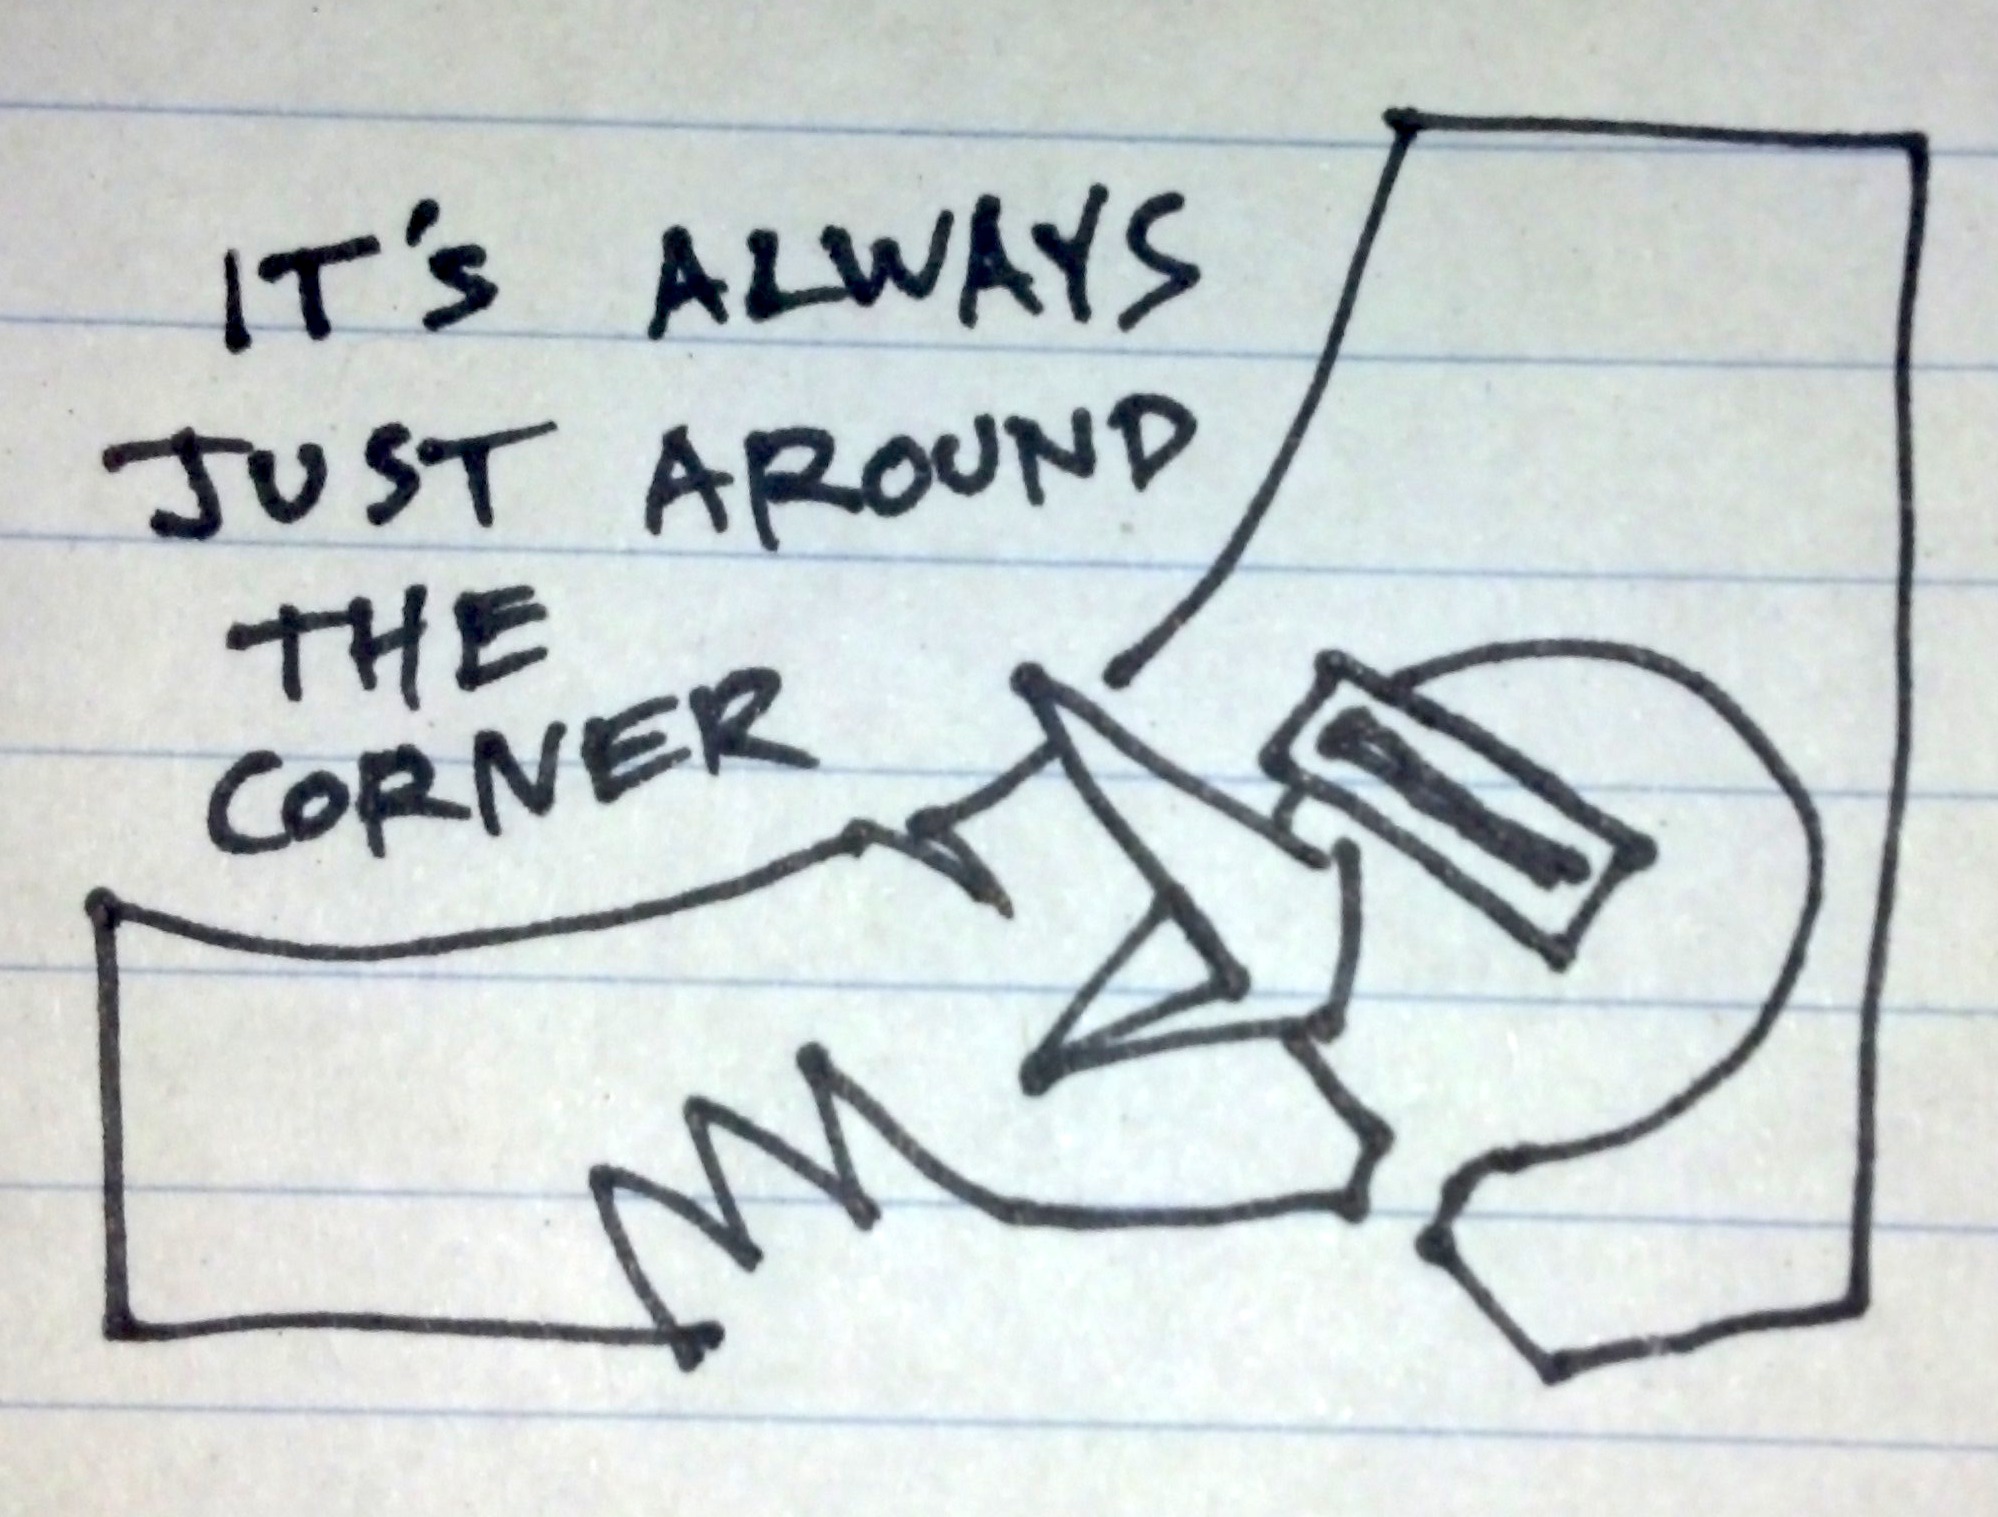 IT'S ALWAYS
JUST AROUND
THE
CORNER